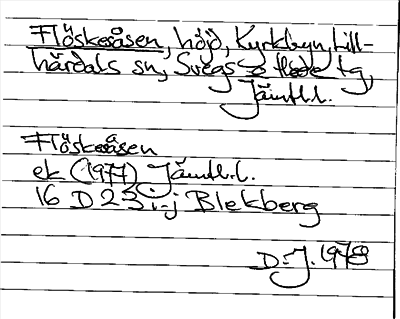 Flöskeråsen, höjd, Kyrkbyn, Lill-
härdals sn, Svegs tg,
Jämtl.l.
Flöskeråsen
ek (1977) Jämtl.l.
16 D 2-3 i-j Blekberg
D.J. 1978